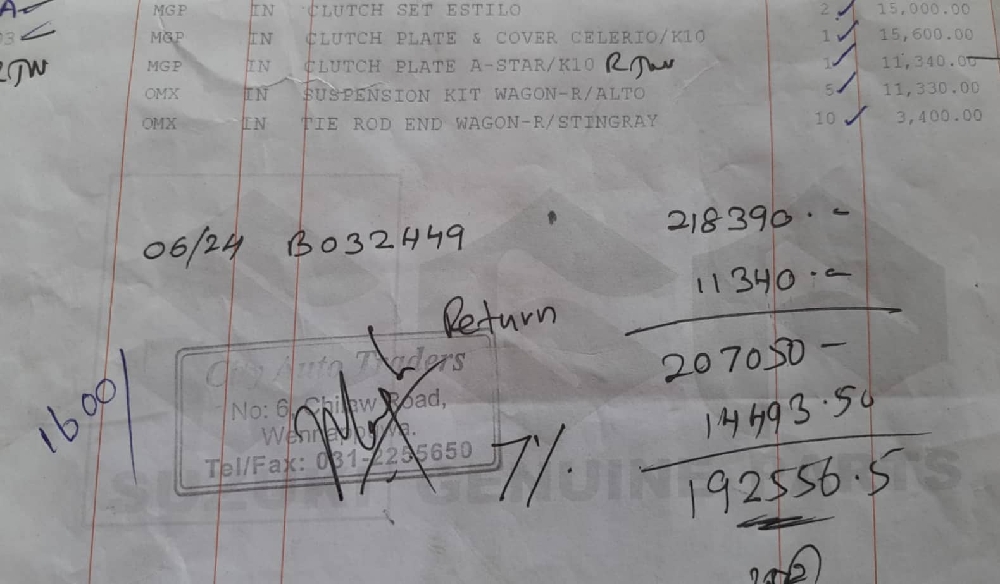 MGP IN CLUTCH SET ESTILO 2 15,000.00
MGP IN CLUTCH PLATE & COVER CELERIO/K10 1 15,600.00
MGP IN CLUTCH PLATE A-STAR/K10 RTW 1 11,340.00
OMX IN SUSPENSION KIT WAGON-R/ALTO 5 11,330.00
OMX IN TIE ROD END WAGON-R/STINGRAY 10 3,400.00
218390.-
06/24 B032449
11340.-
Return
207050-
City Auto Traders
14493.50
1600/
No: 6, Chilaw Road,
7%.
Tel/Fax: 031-2255650
192556.5
SUZUKI GENUINE PARTS